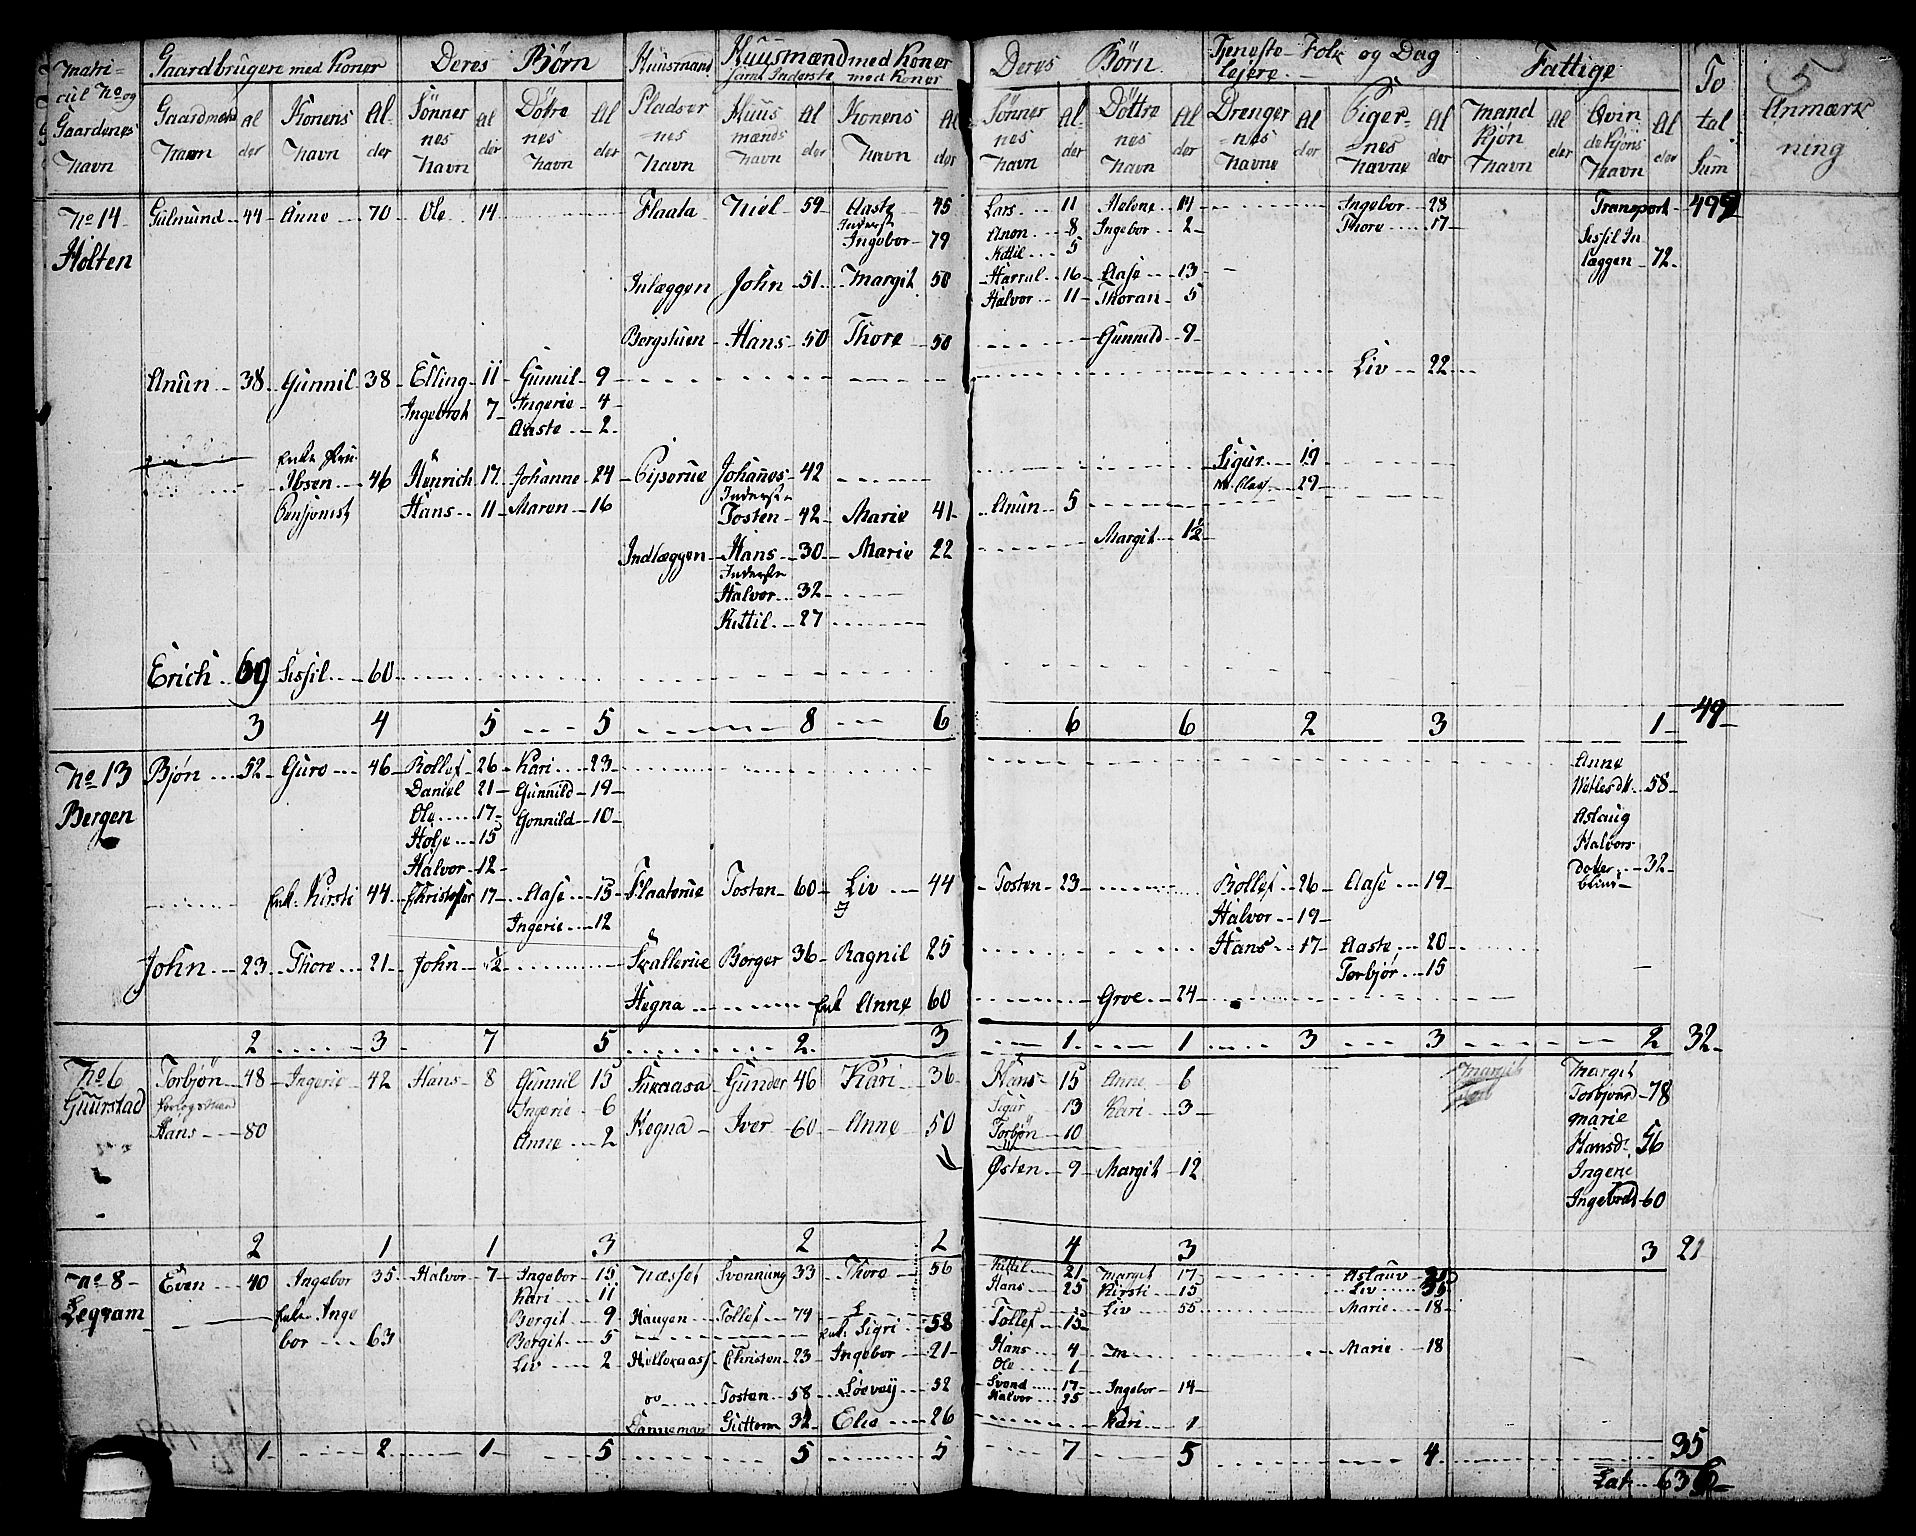 Matri-
cul No og
Gaardenes
Navn
Gaardbrugere med Koner
Deres Børn
Huusmand
Huusmænd med Koner
samt Inderste med Koner
Deres Børn
Tjeneste-Folk og Dag
lejere
Fattige
To
tal
Sum
5
Anmærk
ning
Gaardmænd Navn Al der Konens Navn Al der Sønner nes Navn Al der Døtre nes Navn Al der Pladser nes Navn Huus mænds Navn Al der Konens Navn Al der Sønner nes Navn Al der Døttre nes Navn Al der Drenger nes Navne Al der Piger nes Navne Al der Mand Kjøn Navn Al der Qvin de Kjøns Navn Al der
No 14 Gulmund 44 Anne 70 Ole 14 Flaata Niel 59 Aaste 45 Lars 11 Helene 14 Ingebor 28 Transport 499
Holten Inderst Ingebor 79 Anon 8 Ingebor 2 Thore 17 Sissil In
Kittil 5 læggen 72
Inlæggen John 51 Margit 50 Harral 16 Aase 13
Halvor 11 Thoran 5
Bergstuen Hans 50 Thore 50 Gunnild 9
Anun 38 Gunnil 38 Elling 11 Gunnil 9 Liv 22
Ingebrat 7 Ingerie 4
Aaste 2
Enke Fru
Ibsen 46 Henrich 17 Johanne 24 Pipserue Johanes 42 Sigur 19
Pensjonist Hans 11 Maren 16 Inderste
Tosten 42 Marie 41 Anun 5
Indlæggen Hans 30 Marie 22 Margit 1½
Inderste
Halvor 32
Kittil 27
Erich 69 Sissil 60
3 4 5 5 8 6 6 6 2 3 1 49
No 13 Bjøn 52 Guro 46 Rollef 26 Kari 23 Anne
Bergen Daniel 21 Gunnild 19 58
Ole 17 Gonnild 10 Aslaug
Holje 15 Halvors
Halvor 12 Dotter 32
Enk. Kirsti 44 Christoffer 17 Aase 15 Flaaterue Tosten 60 Liv 44 Tosten 23 Rollef 26 Aase 19 blind
Ingerie 12 Halvor 19
John 23 Thore 21 John ½ Skallerue Borger 36 Ragnil 25 Hans 17 Aaste 20
Torbjør 15
Hegna Enk Anne 60 Groe 24
2 3 7 5 2 3 1 1 3 3 2 32
No 6 Torbjøn 48 Ingerie 42 Hans 8 Gunnil 15 Skraasa Gunder 46 Kari 36 Hans 15 Anne 6 Margit Margit
Guurstad Ingerie 6 Sigur 13 Kari 3 Torbjørd 78
Hans 80 Anne 2 Hegna Iver 60 Anne 50 Torbjøn 10 Marie
Østen 9 Margit 12 Hansd. 56
Ingerie
Ingebrds 60
2 1 1 3 2 2 4 3 3 21
No 8 Even 40 Ingebor 35 Halvor 7 Ingebor 15 Næsset Svennung 33 Thore 56 Kittil 21 Margit 17 Aslauv
Legram Kari 11 Hans 25 Kirsti 15 Liv 35
Enke Inge Bergit 9 Haugen Tollef 74 Liv 55 Marie 18
bor 63 Borgit 5 Enk. Sigri 58 Tollef 15
Liv 2 Christen 23 Ingebor 21 Hans 4 Marie 18
Ole 1
Tosten 58 Løevøy 52 Svend 17 Ingebor 14
Halvor 25
Guttorm 32 Elie 26 Kari 1
1 2 1 5 5 5 7 5 4 35
Lat. 636